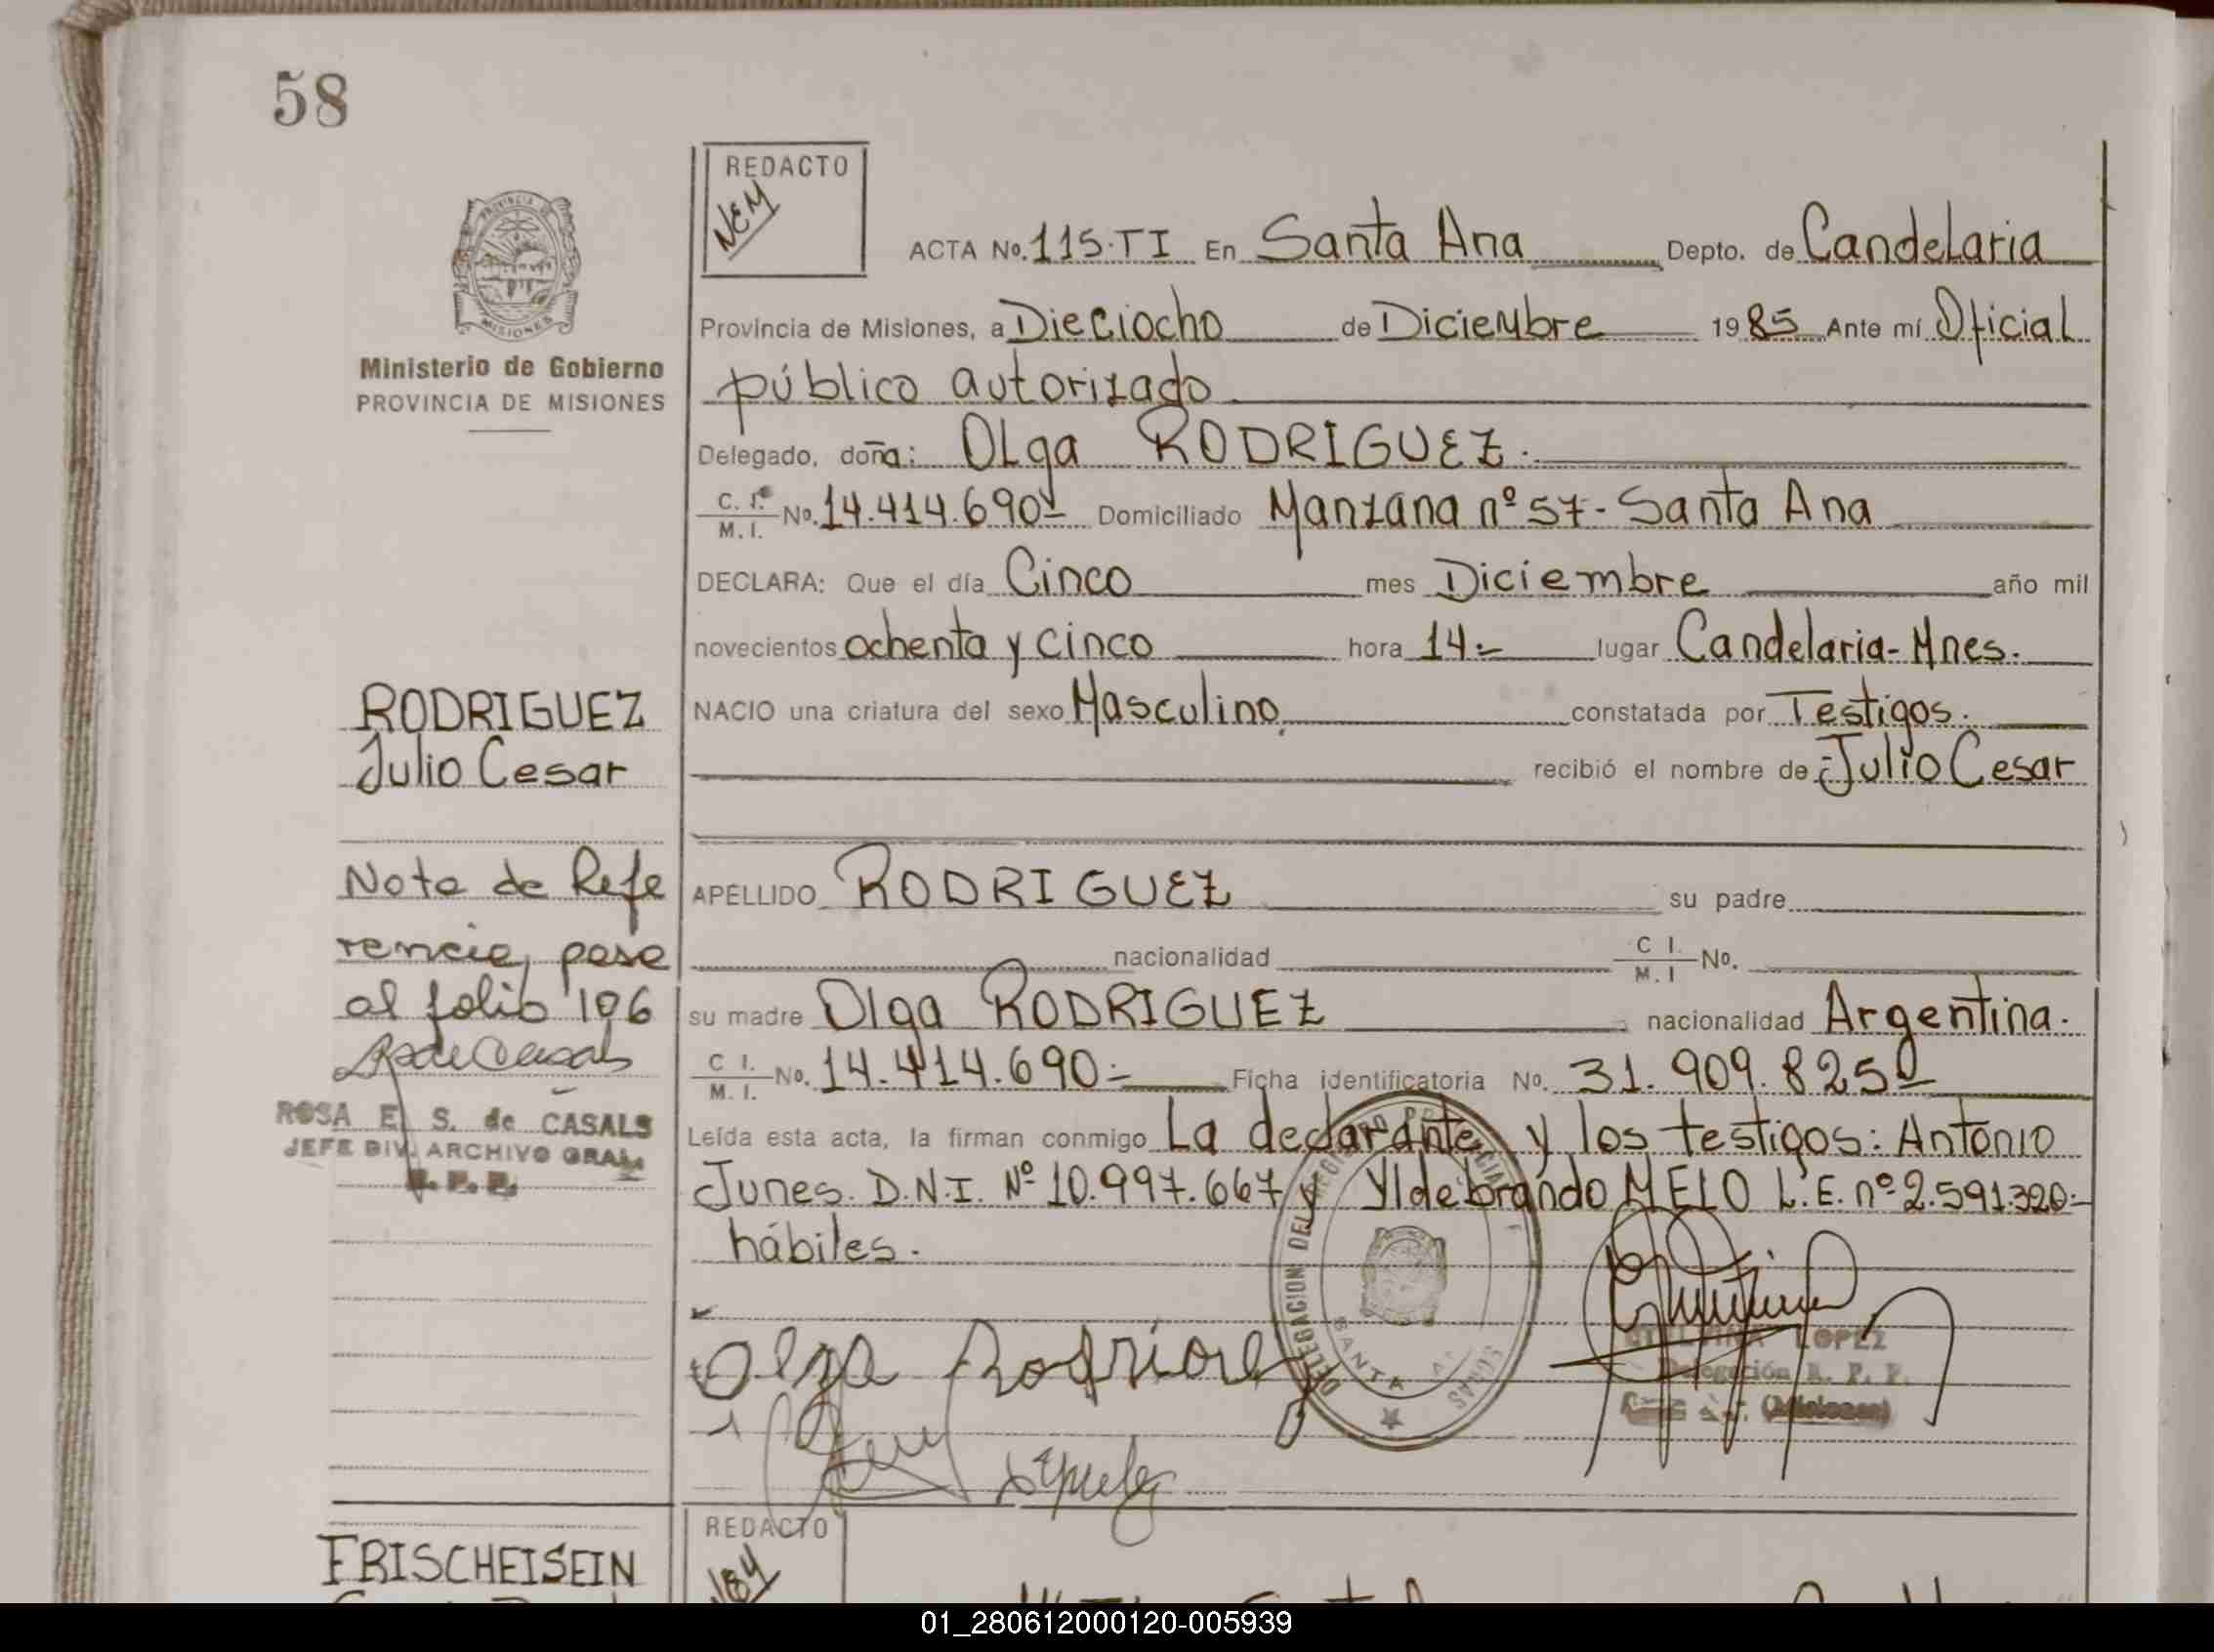 58
REDACTO
NEM
ACTA Nº. 115.TI En Santa Ana Depto. de Candelaria
Provincia de Misiones, a Dieciocho de Diciembre 1985 Ante mí Oficial
público autorizado
Delegado, doña: Olga RODRIGUEZ.
C. I. M. I. Nº. 14.414.690 Domiciliado Manzana nº 57- Santa Ana
DECLARA: Que el día Cinco mes Diciembre año mil
novecientos ochenta y cinco hora 14:- lugar Candelaria- Mnes.
NACIO una criatura del sexo Masculino. constatada por Testigos.
recibió el nombre de: Julio Cesar
APELLIDO RODRIGUEZ su padre
nacionalidad C I. M. I Nº.
su madre Olga RODRIGUEZ nacionalidad Argentina.
C I. M. I. Nº. 14.414.690:- Ficha identificatoria Nº. 31.909.825
Leída esta acta, la firman conmigo La declarante y los testigos: Antonio
Junes. D.N.I. Nº 10.997.667 y Yldebrando MELO L.E. nº 2.591.320:-
hábiles.
PROVINCIA DE
MISIONES
Ministerio de Gobierno
PROVINCIA DE MISIONES
RODRIGUEZ
Julio Cesar
Nota de Refe
rencia, pase
al folio 106
ROSA E. S. de CASALS
JEFE DIV. ARCHIVO GRAL.
Olga Rodriguez
DELEGACION DEL REGISTRO PROVINCIAL
SANTA
LOPEZ
Delegación R. P. P.
(Misiones)
REDACTO
FRISCHEISEIN
01_280612000120-005939